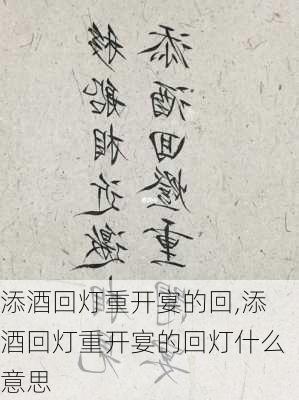 移船相近邀相見
添酒回燈重
添酒回灯重开宴的回,添
酒回灯重开宴的回灯什么
意思